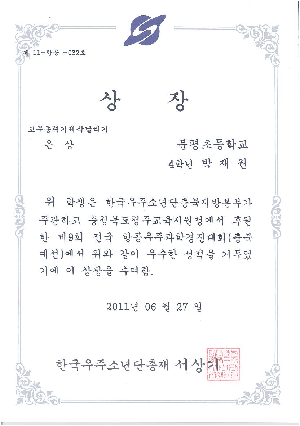 상 장
은 상
봉명초등학교
4학년 박재원
위 학생은 한국우주소년단충북지방본부가
주관하고 충청북도청주교육지원청에서 후원
한 제9회 전국 항공우주과학경진대회(충북
예선)에서 위와 같이 우수한 성적을 거두었
기에 이 상장을 수여함.
2011년 06월 27일
한국우주소년단총재 서상기